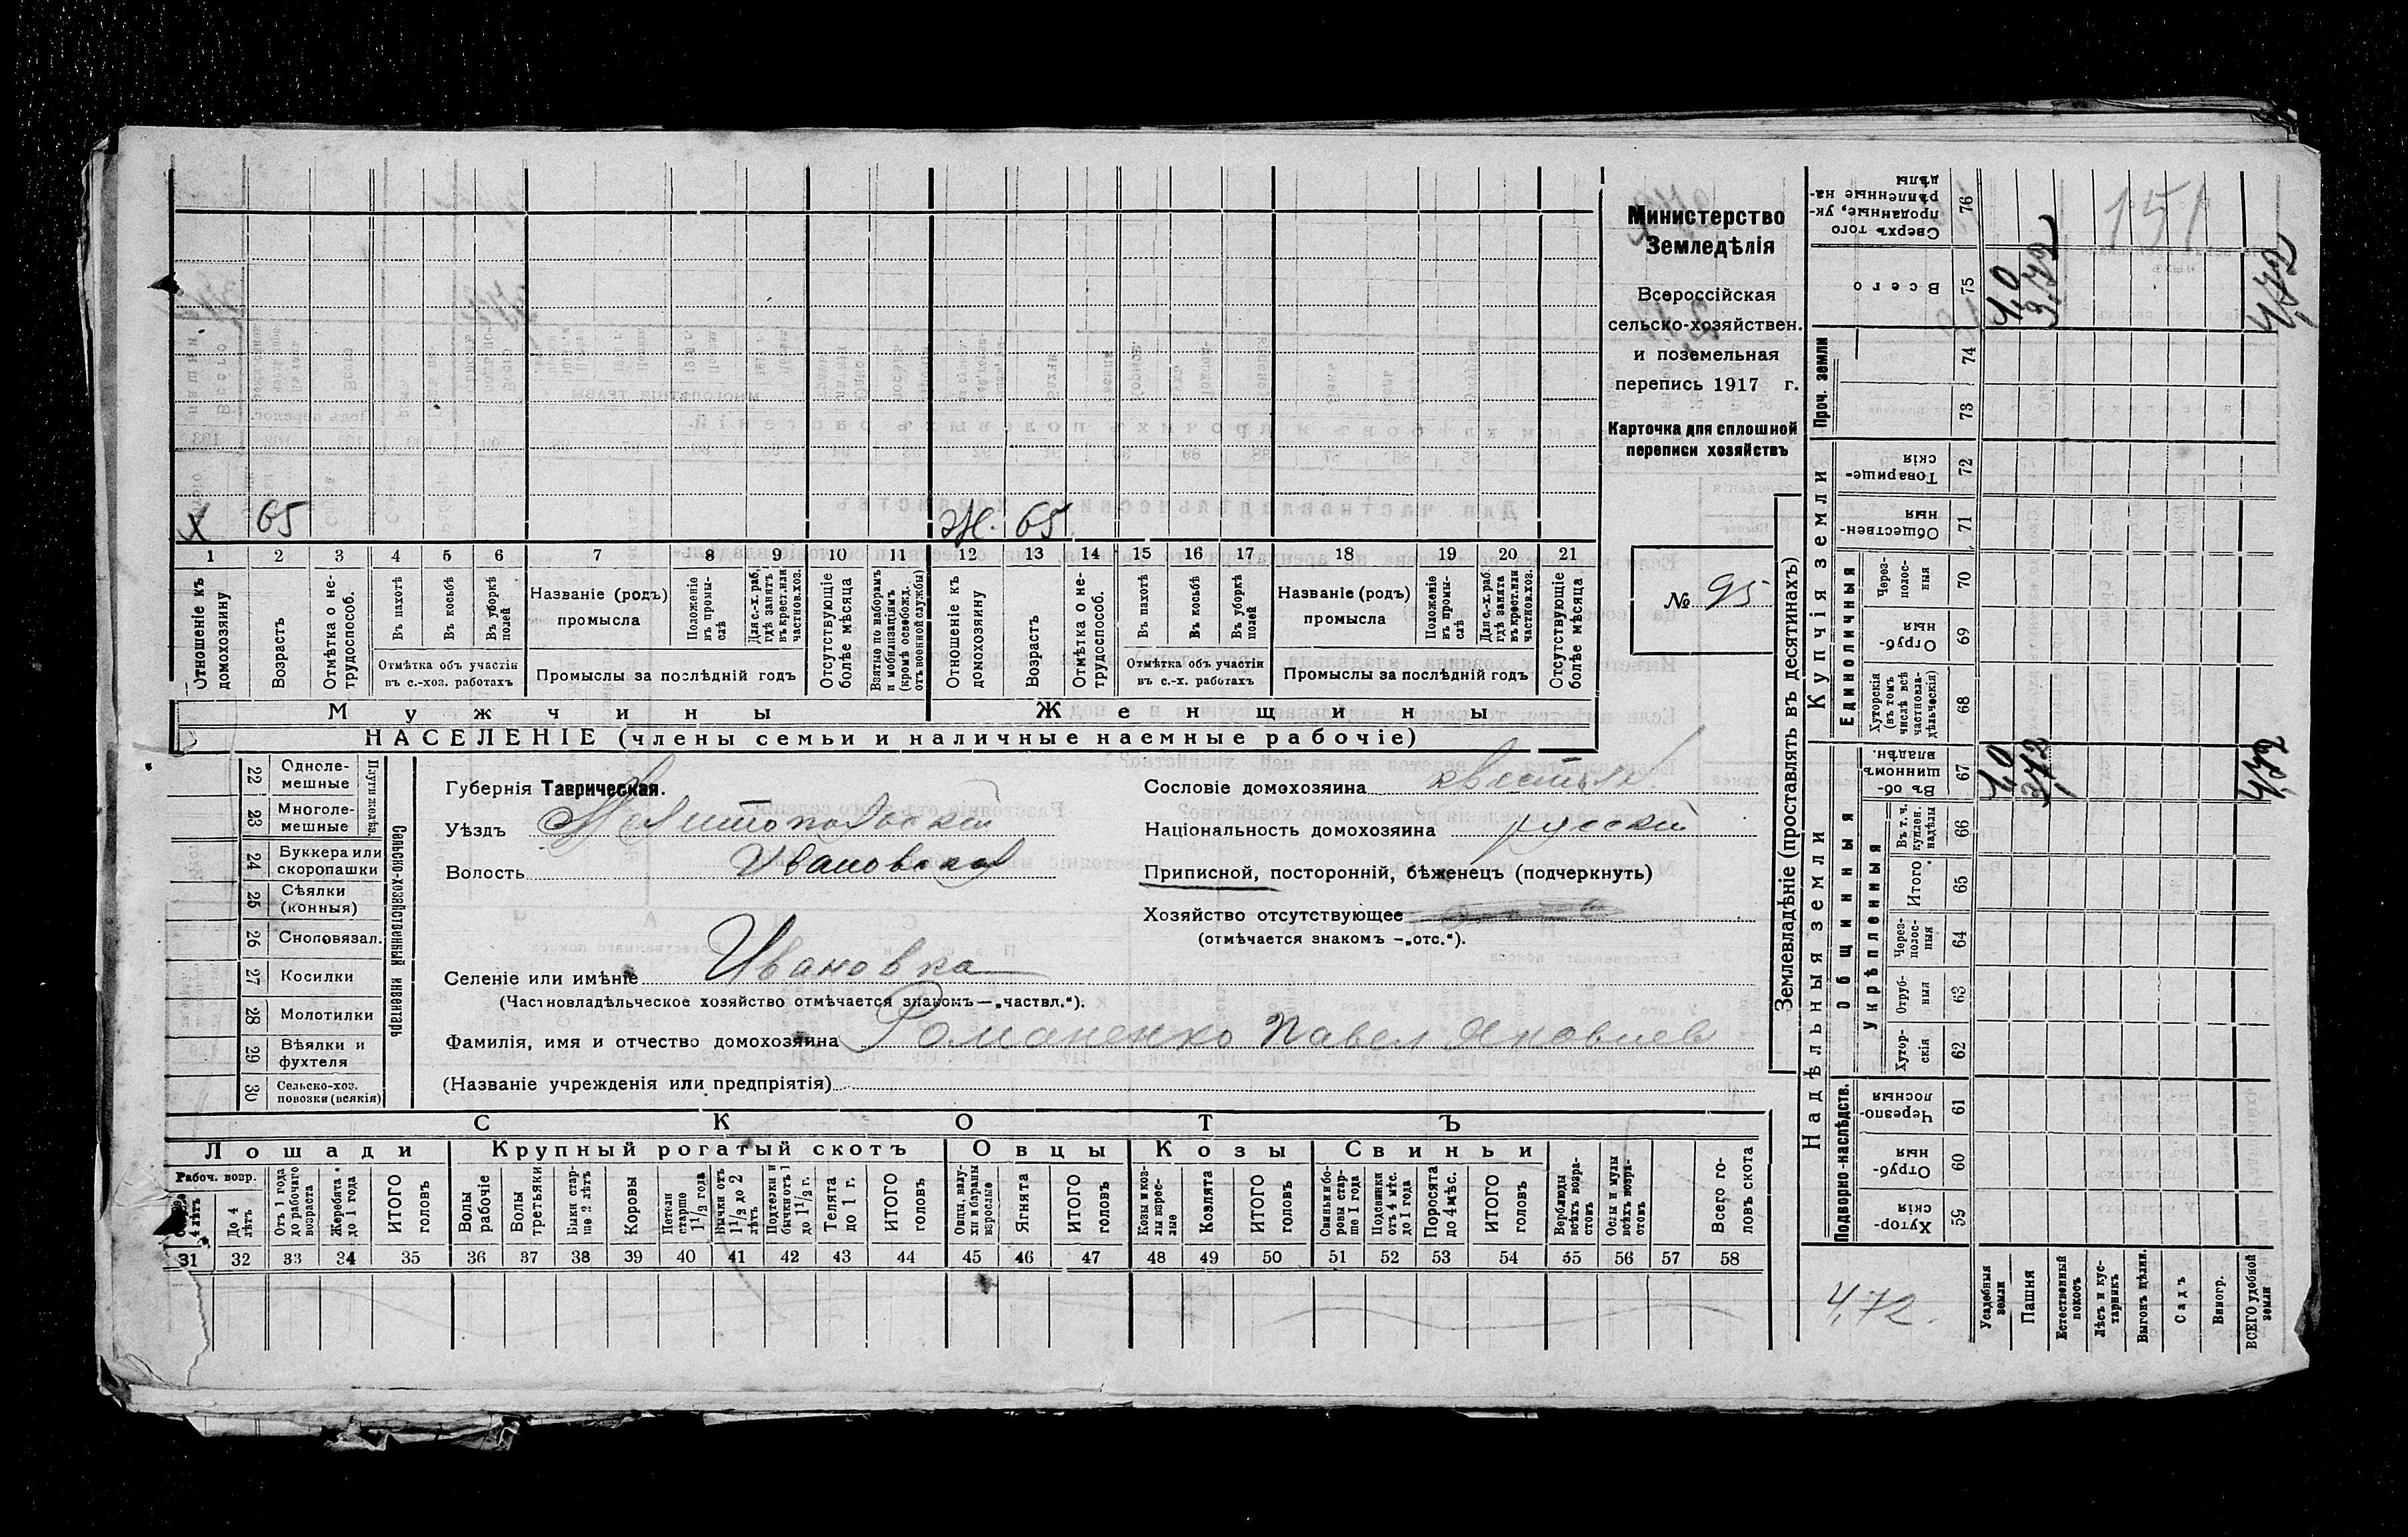 Министерство
Земледѣлія
Всероссійская
сельско-хозяйствен.
и поземельная
перепись 1917 г.
Карточка для сплошной
переписи хозяйствъ
№ 95
х 65
Ж. 65
1 2 3 4 5 6 7 8 9 10 11 12 13 14 15 16 17 18 19 20 21
Отношеніе къ домохозяину
Возрастъ
Отмѣтка о не-трудоспособ.
Въ пахотѣ
Въ косьбѣ
Въ уборкѣ полей
Отмѣтка объ участіи
въ с.-хоз. работахъ
Названіе (родъ)
промысла
Положеніе въ промы-слѣ
Для с.-х. раб, гдѣ занятъ въ крест. или частнов. хоз.
Промыслы за послѣдній годъ
Отсутствующіе болѣе мѣсяца
Взятые по наборамъ и мобилизаціямъ (кромѣ освобожд. отъ военной службы)
Отношеніе къ домохозяину
Возрастъ
Отмѣтка о не-трудоспособ.
Въ пахотѣ
Въ косьбѣ
Въ уборкѣ полей
Отмѣтка объ участіи
въ с.-х. работахъ
Названіе (родъ)
промысла
Положеніе въ промы-слѣ
Для с.-х. раб. гдѣ занята въ крест. или частнов. хоз.
Промыслы за послѣдній годъ
Отсутствующіе болѣе мѣсяца
Мужчины
Женщины
НАСЕЛЕНІЕ (члены семьи и наличные наемные рабочіе)
22 Одноле-мешные
23 Многоле-мешные
Плуги желѣз.
24 Буккера или скоропашки
25 Сѣялки (конныя)
26 Сноповязал.
27 Косилки
28 Молотилки
29 Вѣялки и фухтеля
30 Сельско-хоз. повозки (всякія)
Сельско-хозяйственный инвентарь
Губернія Таврическая.
Уѣздъ Мелитопольскій
Волость Ивановская
Селеніе или имѣніе Ивановка
(Частновладѣльческое хозяйство отмѣчается знакомъ—„частвл.“).
Фамилія, имя и отчество домохозяина Романенко Павел Яковлев
(Названіе учрежденія или предпріятія)
Сословіе домохозяина крестьян.
Національность домохозяина русскій
Приписной, посторонній, бѣженецъ (подчеркнуть)
Хозяйство отсутствующее
(отмѣчается знакомъ —„отс.“).
СКОТЪ
Лошади
Крупный рогатый скотъ
Овцы
Козы
Свиньи
Рабоч. возр.
4 лѣтъ
До 4 лѣтъ
Отъ 1 года до рабочаго возраста
Жеребята до 1 года
ИТОГО головъ
Волы рабочіе
Волы третьяки
Быки стар-ше 2 лѣтъ
Коровы
Нетели старше 1 1/2 года
Бычки отъ 1 1/2 до 2 лѣтъ
Подтелки и бычки отъ 1 до 1 1/2 г.
Телята до 1 г.
ИТОГО головъ
Овцы, валу-хи и бараны взрослые
Ягнята
ИТОГО головъ
Козы и коз-лы взрос-лые
Козлята
ИТОГО головъ
Свиньи и бо-ровы стар-ше 1 года
Подсвинки отъ 4 мѣс. до 1 года
Поросята до 4 мѣс.
ИТОГО головъ
Верблюды всѣхъ возра-стовъ
Ослы и мулы всѣхъ возра-стовъ
Всего го-ловъ скота
31 32 33 34 35 36 37 38 39 40 41 42 43 44 45 46 47 48 49 50 51 52 53 54 55 56 57 58
Землевладѣніе (проставлять въ десятинахъ)
Надѣльныя земли
Купчія земли
Проч. земли
Подворно-наслѣдств.
Общинныя
Укрѣпленныя
Единоличныя
Хутор-скія 59
Отруб-ныя 60
Черезпо-лосныя 61
Хутор-скія 62
Отруб-ныя 63
Через-полос-ныя 64
Итого 65
Въ т. ч. куплен. надѣлы 66
Въ об-щинномъ владѣн. 67
Хуторскія (въ томъ числѣ всѣ частновла-дѣльческія) 68
Отруб-ныя 69
Через-полос-ныя 70
Обществен-ныя 71
Товарище-скія 72
73
74
Всего 75
Сверхъ того проданные, ук-рѣпленные на-дѣлы 76
Усадебныя земли 1,0 1,0
Пашня 3,72 3,72
Естественный покосъ
Лѣсъ и кус-тарникъ
Выгонъ цѣлин.
Садъ
Виногр.
ВСЕГО удобной земли 4,72 4,72
151
4,72.